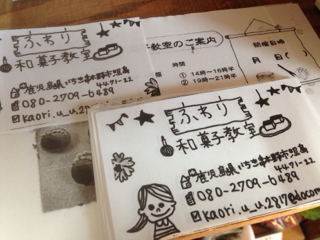 ふちり
和菓子教室
鹿児島県いちき串木野市照島
4471-22
080-2709-6489
kaori_u_u_2817@docom
ふちり
和菓子教室
鹿児島県いちき串木野市照島
4471-22
080-2709-6489
kaori_u_u_2
子教室のご案内
時間
① 14時〜16時半
② 19時〜21時半
開催日時
月 日( )